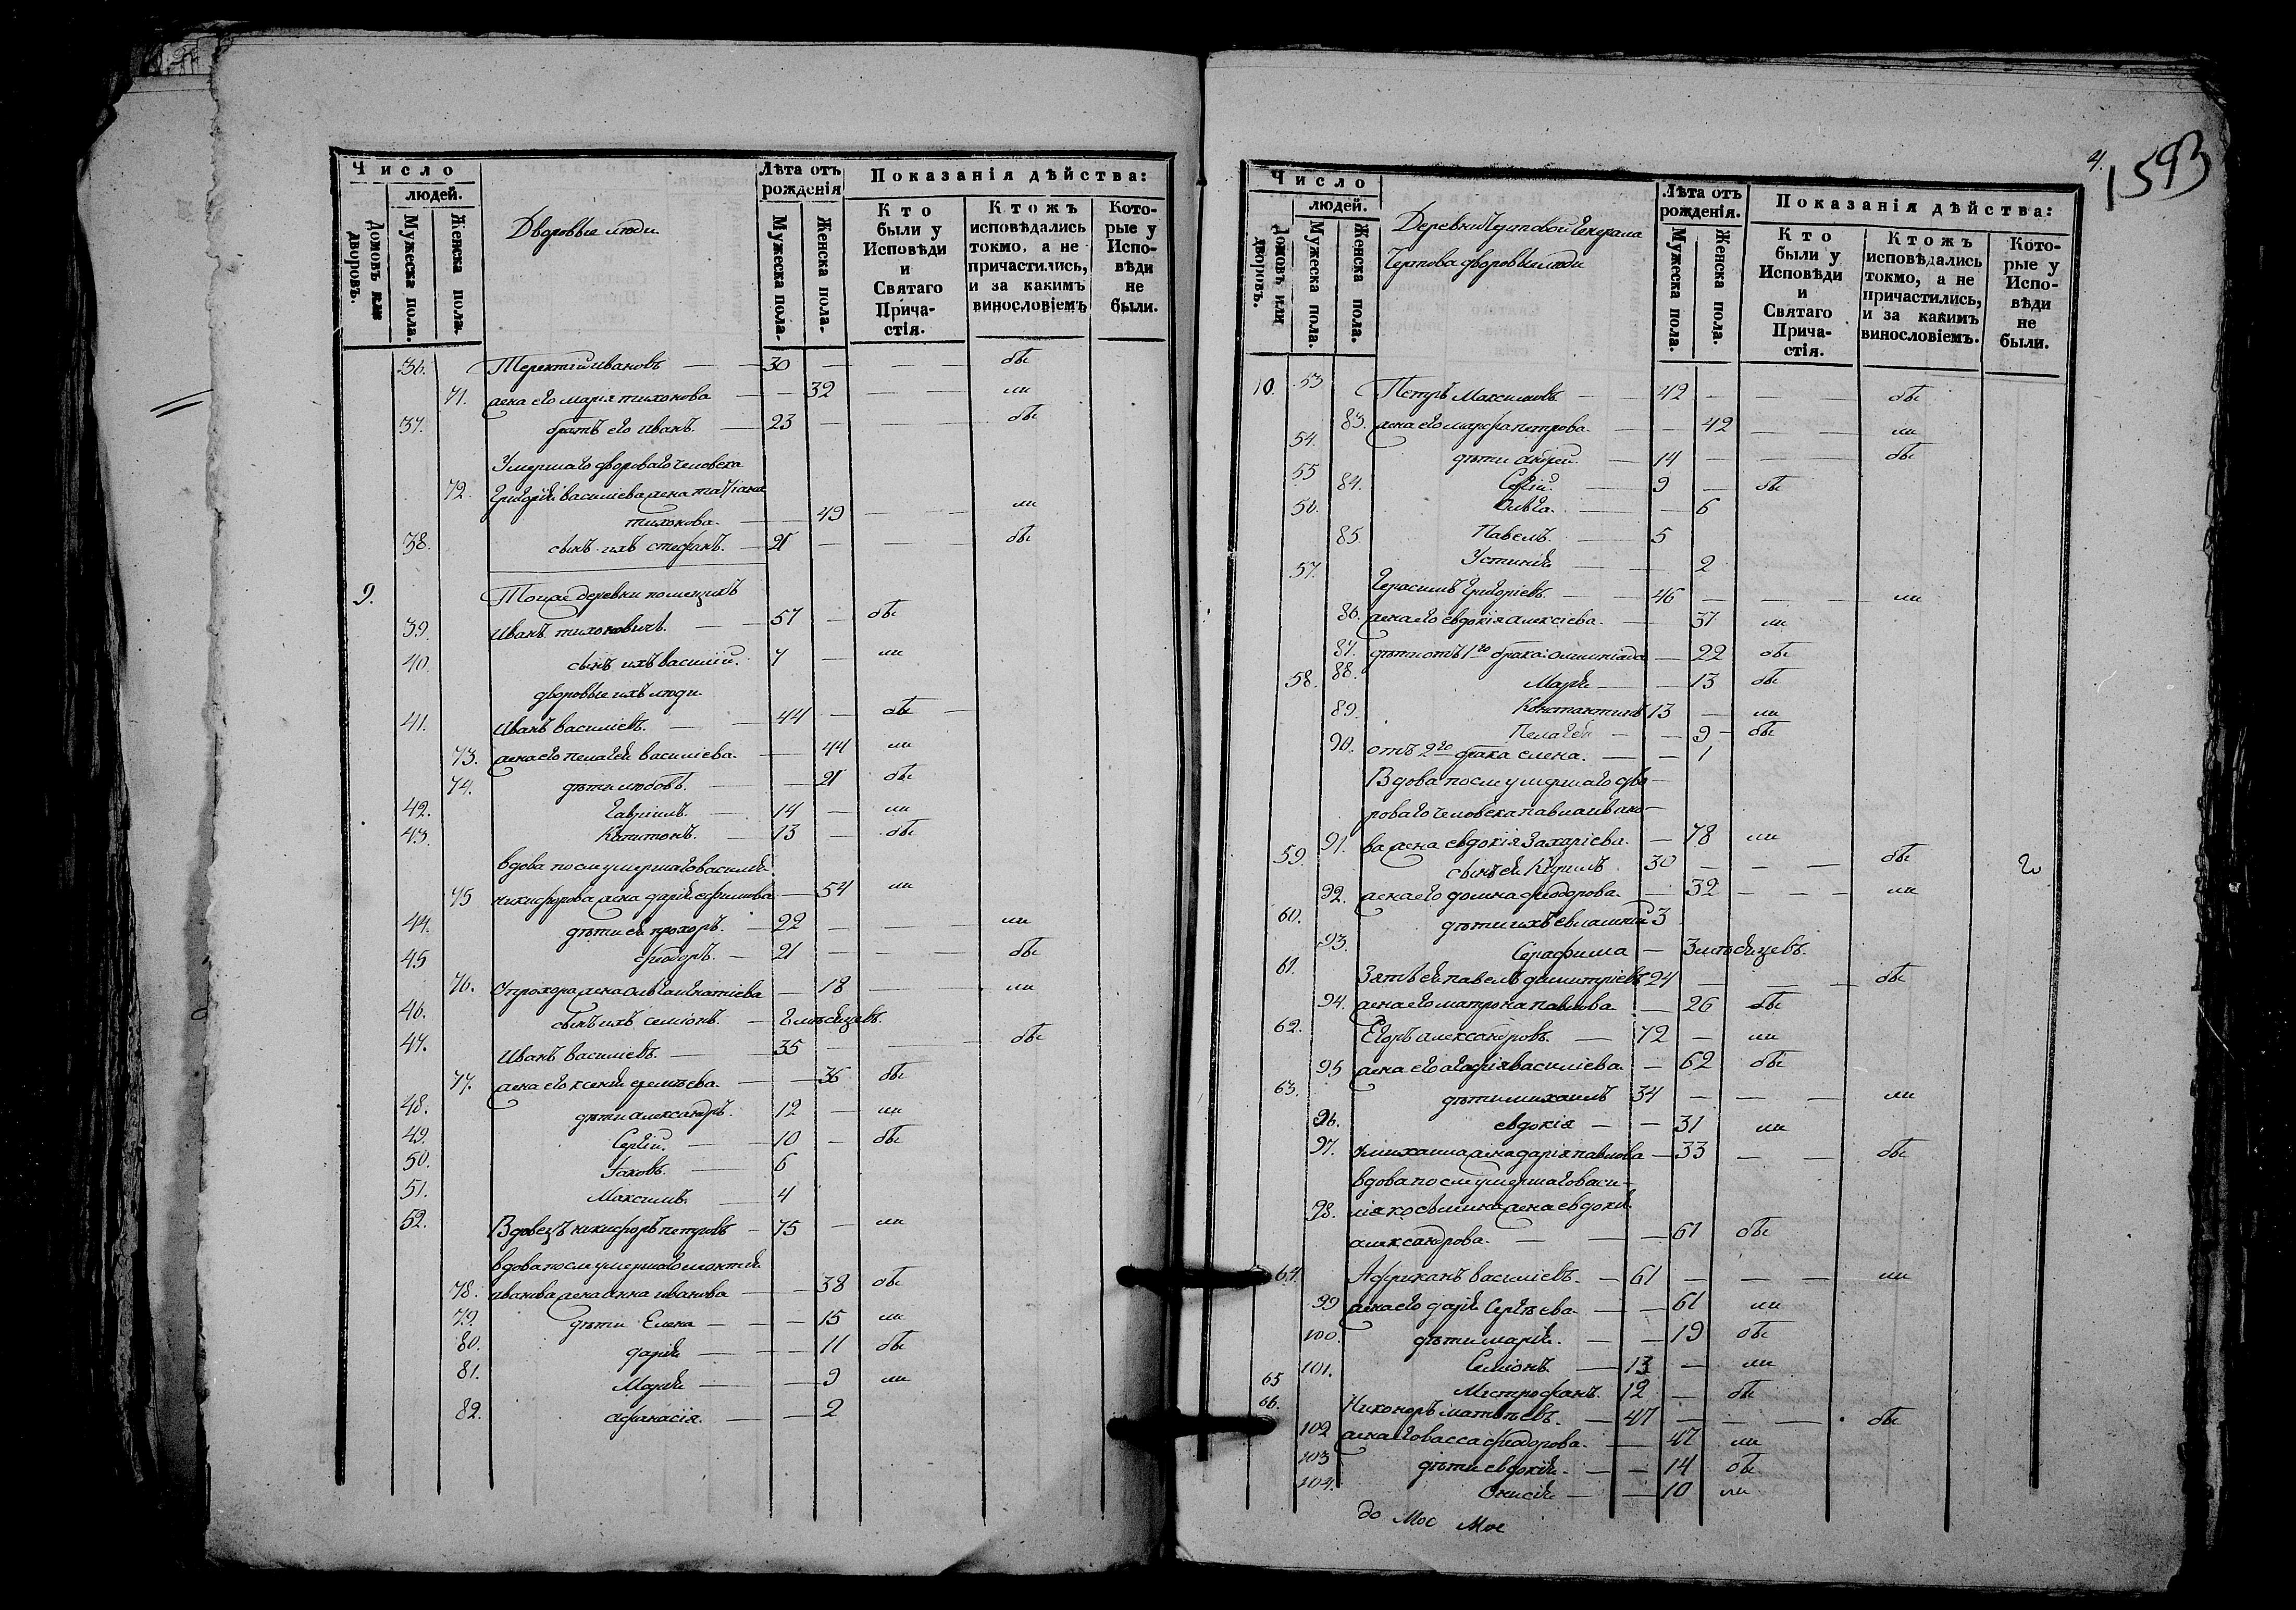 Число
людей.
Домовъ или дворовъ.
Мужеска пола.
Женска пола.
Дворовые люди
Лѣта отъ рожденія
Мужеска пола.
Женска пола.
Показанія дѣйства:
Кто были у Исповѣди и Святаго Прича-стія.
Ктожъ исповѣдались токмо, а не причастились, и за какимъ винословіемъ
Кото-рые у Испо-вѣди не были.
36. Терентій ивановъ — 30 — — бы
71. жена его марія тихонова — — 32 — ли
37. братъ его иванъ. — 23 — — бы
Умершаго двороваго человека
72. Григорія василіева жена татіана
тихонова. — — 49 — ли
38. сынъ ихъ стефанъ. — 21 — — бы
9. Тоиже деревни помещикъ
39. Иванъ тихоновичъ. — 57 — бы
40. сынъ ихъ василій. 7 — ли
дворовые ихъ люди
41. Иванъ василіевъ. — 44 — бы
73. жена его пелагея василіева. — 44 ли
74. дѣти любовь. — — 21 бы
42. Гавріилъ. — 14 — ли
43. Капитонъ. — 13 — бы
вдова после умершаго василія
75 никифорова жена дарія ефимова — 54 ли
44. дѣти ея прохоръ. — 22 — — ли
45 феодоръ. — 21 — — бы
76. У прохора жена ольга игнатіева — 18 — ли
46. сынъ ихъ семіонъ. — 8 мѣсяцевъ.
47. Иванъ василіевъ. — 35 — — бы
77. жена его ксенія — 36 бы
48. дѣти александръ. 12 — ли
49. Сергій. — 10 — бы
50. Іаковъ. — 6
51. Максимъ — 4
52. Вдовецъ никифоръ петровъ — 75 — ли
вдова после умершаго леонтія
78. иванова жена анна иванова — — 38 бы
79. дѣти Елена — — 15 ли
80. дарія — — 11 бы
81. Марія — — 9 ли
82. афанасія. — — 2
4. 1593
Число
людей.
Домовъ или дворовъ.
Мужеска пола.
Женска пола.
Деревни Чертовой Генерала
Чертова дворовые люди
Лѣта отъ рожденія.
Мужеска пола.
Женска пола.
Показанія дѣйства:
Кто были у Исповѣди и Святаго Прича-стія.
Ктожъ исповѣдались токмо, а не причастились, и за какимъ винословіемъ.
Кото-рые у Испо-вѣди не были.
10. 53 Петръ Максимовъ — 42 — — бы
83. жена его марфа петрова. — — 42 — ли
54. дѣти андрей. — 14 — — бы
55 Сергій. — 9 — бы
84. Ольга. — — 6
56. Павелъ. — 5
85. Устинія — — 2
57. Герасимъ Григоріевъ. — 46 — — ли
86. жена его евдокія алексіева. — 37 ли
87. дѣти отъ 1го брака: олимпіада — 22 бы
88. Марія — — 13 бы
58. Константинъ 13 — ли
89. Пелагея — — 9 — бы
90. отъ 2го брака елена. — — 1
Вдова после умершаго дво-
роваго человека павла ивано-
91. ва жена евдокія захаріева. — 78 ли
59. сынъ ея Кирилъ 30 — — бы
92. жена его домна феодорова. — 32 — — ли
60. дѣти ихъ евлампій 3
93. Серафима — 3 мѣсяцевъ.
61. Зять ея павелъ димитріевъ 24 — — бы
94. жена его матрона павлова. — 26 бы
62. Егоръ александровъ. — 72 — ли
95 жена его агафія василіева. — 62 бы
63. дѣти михаилъ 34 — — ли
96. евдокія — — 31 ли
97. у михаила жена дарія павлова — 33 — бы
вдова после умершаго васи-
98. лія косьмина жена евдокія
александрова. — — 61 бы
64. Африканъ василіевъ. — 61 — — ли
99 жена его дарія Сергѣева. — — 61 ли
100. дѣти марія. — — 19 бы
101. Семіонъ. — 13 — ли
65 Местрофанъ. 12 — бы
66. Никоноръ матвѣевъ. — 47 — — бы
102 жена его васса феодорова. — 47 ли
103 дѣти евдокія. — — 14 бы
104. Онисія — — 10 ли
до Мос Мос